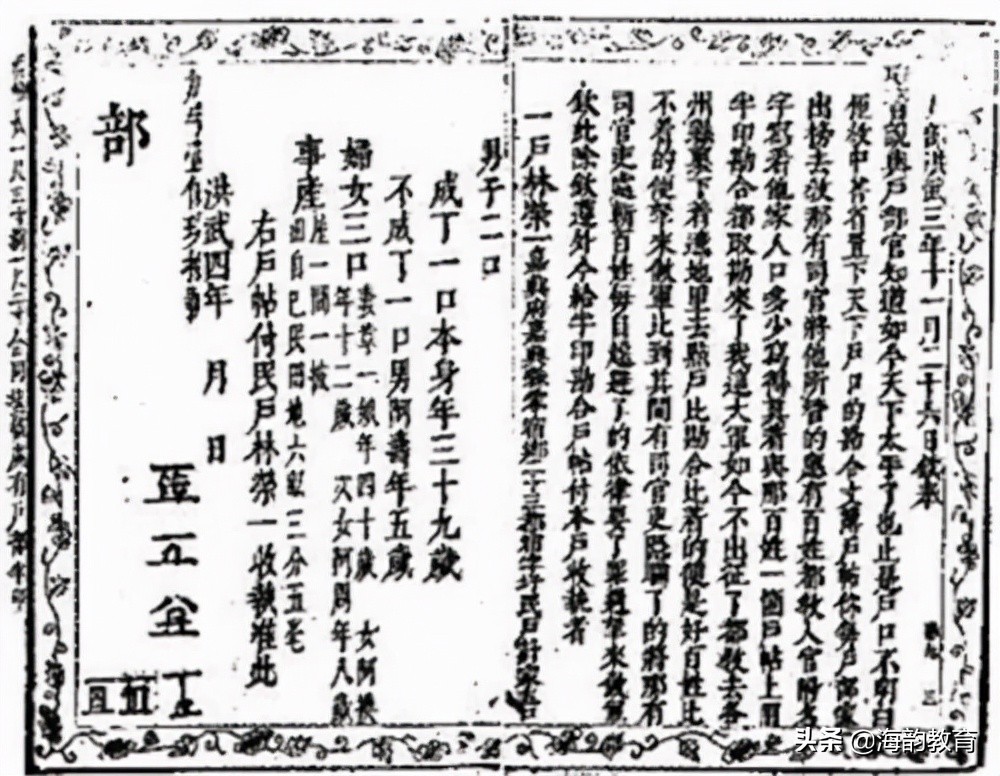 洪武三年十一月二十六日欽奉
聖旨說與戶部官知道如今天下太平了也止是戶口不明白
俚教中書省置下天下戶口的勘合文簿戶帖你每戶部家
出榜去教那有司官將他所管的應有百姓都教入官附名
字寫着他家人口多少寫得真着與那百姓一箇戶帖上用
半印勘合都取勘來了我這大軍如今不出征了都教去各
州縣裏下着遶地里去點戶比勘合比着的便是好百姓比
不着的便拿來做軍比到其間有司官吏隱瞞了的將那有
司官吏處斬百姓每自躲避了的依律要了罪過拿來做軍
欽此除欽遵外今給半印勘合戶帖付本戶收執者
一戶林榮一嘉興府嘉興縣零宿鄉二十三都宿字圩民戶計家五口
男子二口
成丁一口本身年三十九歲
不成丁一口男阿壽年五歲
婦女三口
妻章一娘年四十歲 女阿換
年十二歲 次女阿周年八歲
事產
屋一間一披
田自己民田地六畝三分五毫
右戶帖付民戶林榮一收執准此
洪武四年 月 日
部
头条 @海韵教育